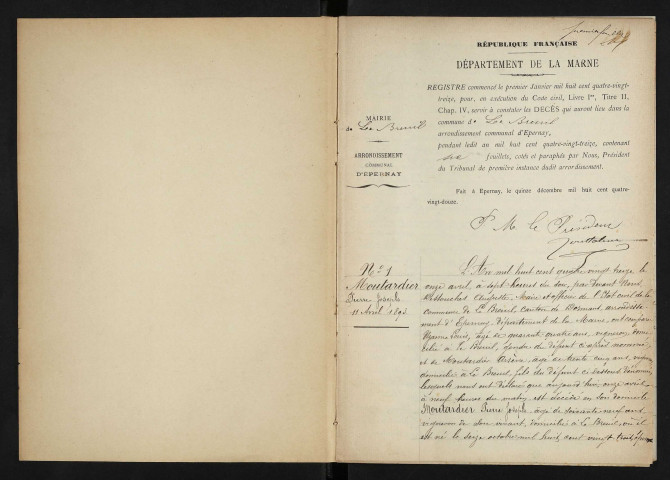 RÉPUBLIQUE FRANÇAISE
DÉPARTEMENT DE LA MARNE
REGISTRE commencé le premier Janvier mil huit cent quatre-vingt-
treize, pour, en exécution du Code civil, Livre Ier, Titre II,
Chap. IV, servir à constater les DÉCÈS qui auront lieu dans la
commune de Le Breuil
arrondissement communal d'Epernay,
pendant ledit an mil huit cent quatre-vingt-treize, contenant
six feuillets, cotés et paraphés par Nous, Président
du Tribunal de première instance dudit arrondissement.
Fait à Epernay, le quinze décembre mil huit cent quatre-
vingt-douze.
P. M. le Président
MAIRIE
de Le Breuil
ARRONDISSEMENT
COMMUNAL
D'ÉPERNAY
No 1
Moutardier
Pierre Joseph
11 Avril 1893
L'An mil huit cent quatre vingt treize le
onze avril à sept heures du soir, par devant Nous
Maire et officier de l'Etat civil de la
commune de Le Breuil, canton de Dormans, arrondisse
ment d'Epernay, département de la Marne, ont comparu
âgé de quarante quatre ans, vigneron domi
cilié à Le Breuil, gendre du défunt ci après nommé
et de Moutardier Arsène, âgé de trente cinq ans, vigneron
domicilié à Le Breuil, fils du défunt ci dessous dénommé
lesquels nous ont déclaré que aujourd'hui onze avril
à neuf heures du matin est décédé en son domicile
Moutardier Pierre Joseph, âgé de soixante neuf ans
vigneron de son vivant, domicilié à Le Breuil, où il
est né le seize octobre mil huit cent vingt trois, époux